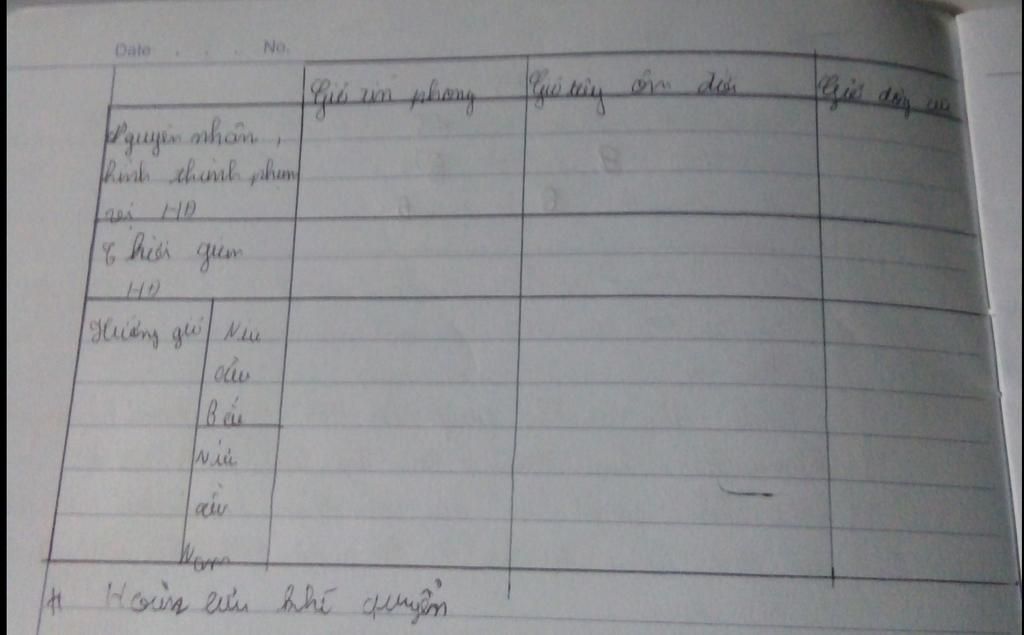 Date . . . No.
Gió tín phong Gió tây ôn đới Gió đông cực
Nguyên nhân,
hình thành phạm
vi HĐ
Thời gian
HĐ
Hướng gió Nửa
cầu
Bắc
Nửa
cầu
Nam
# Hoàn lưu khí quyển